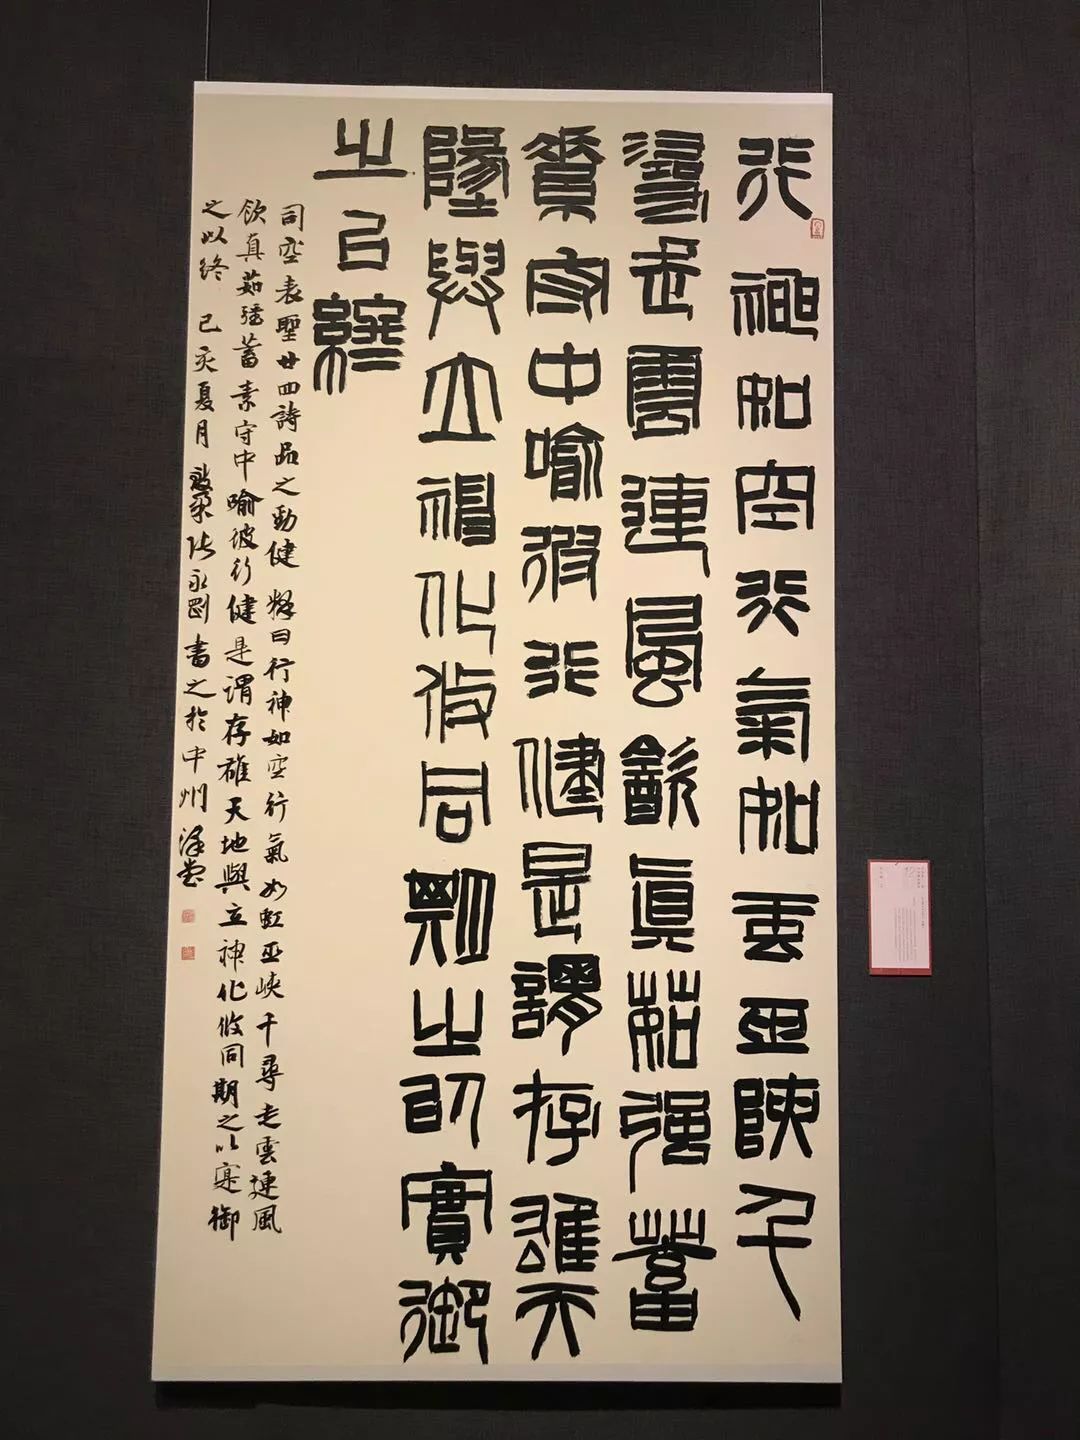 行神如空行气如虹巫陕千
寻走云连风饮真茹强蓄
素守中喻彼行健是谓存雄天
地与立神化攸同期之以实御
之以终
司空表聖廿四詩品之勁健 釋曰行神如空行氣如虹巫峽千尋走雲連風
飲真茹强蓄素守中喻彼行健是謂存雄天地與立神化攸同期之以寔御
之以终 己亥夏月 张永刚書之於中州